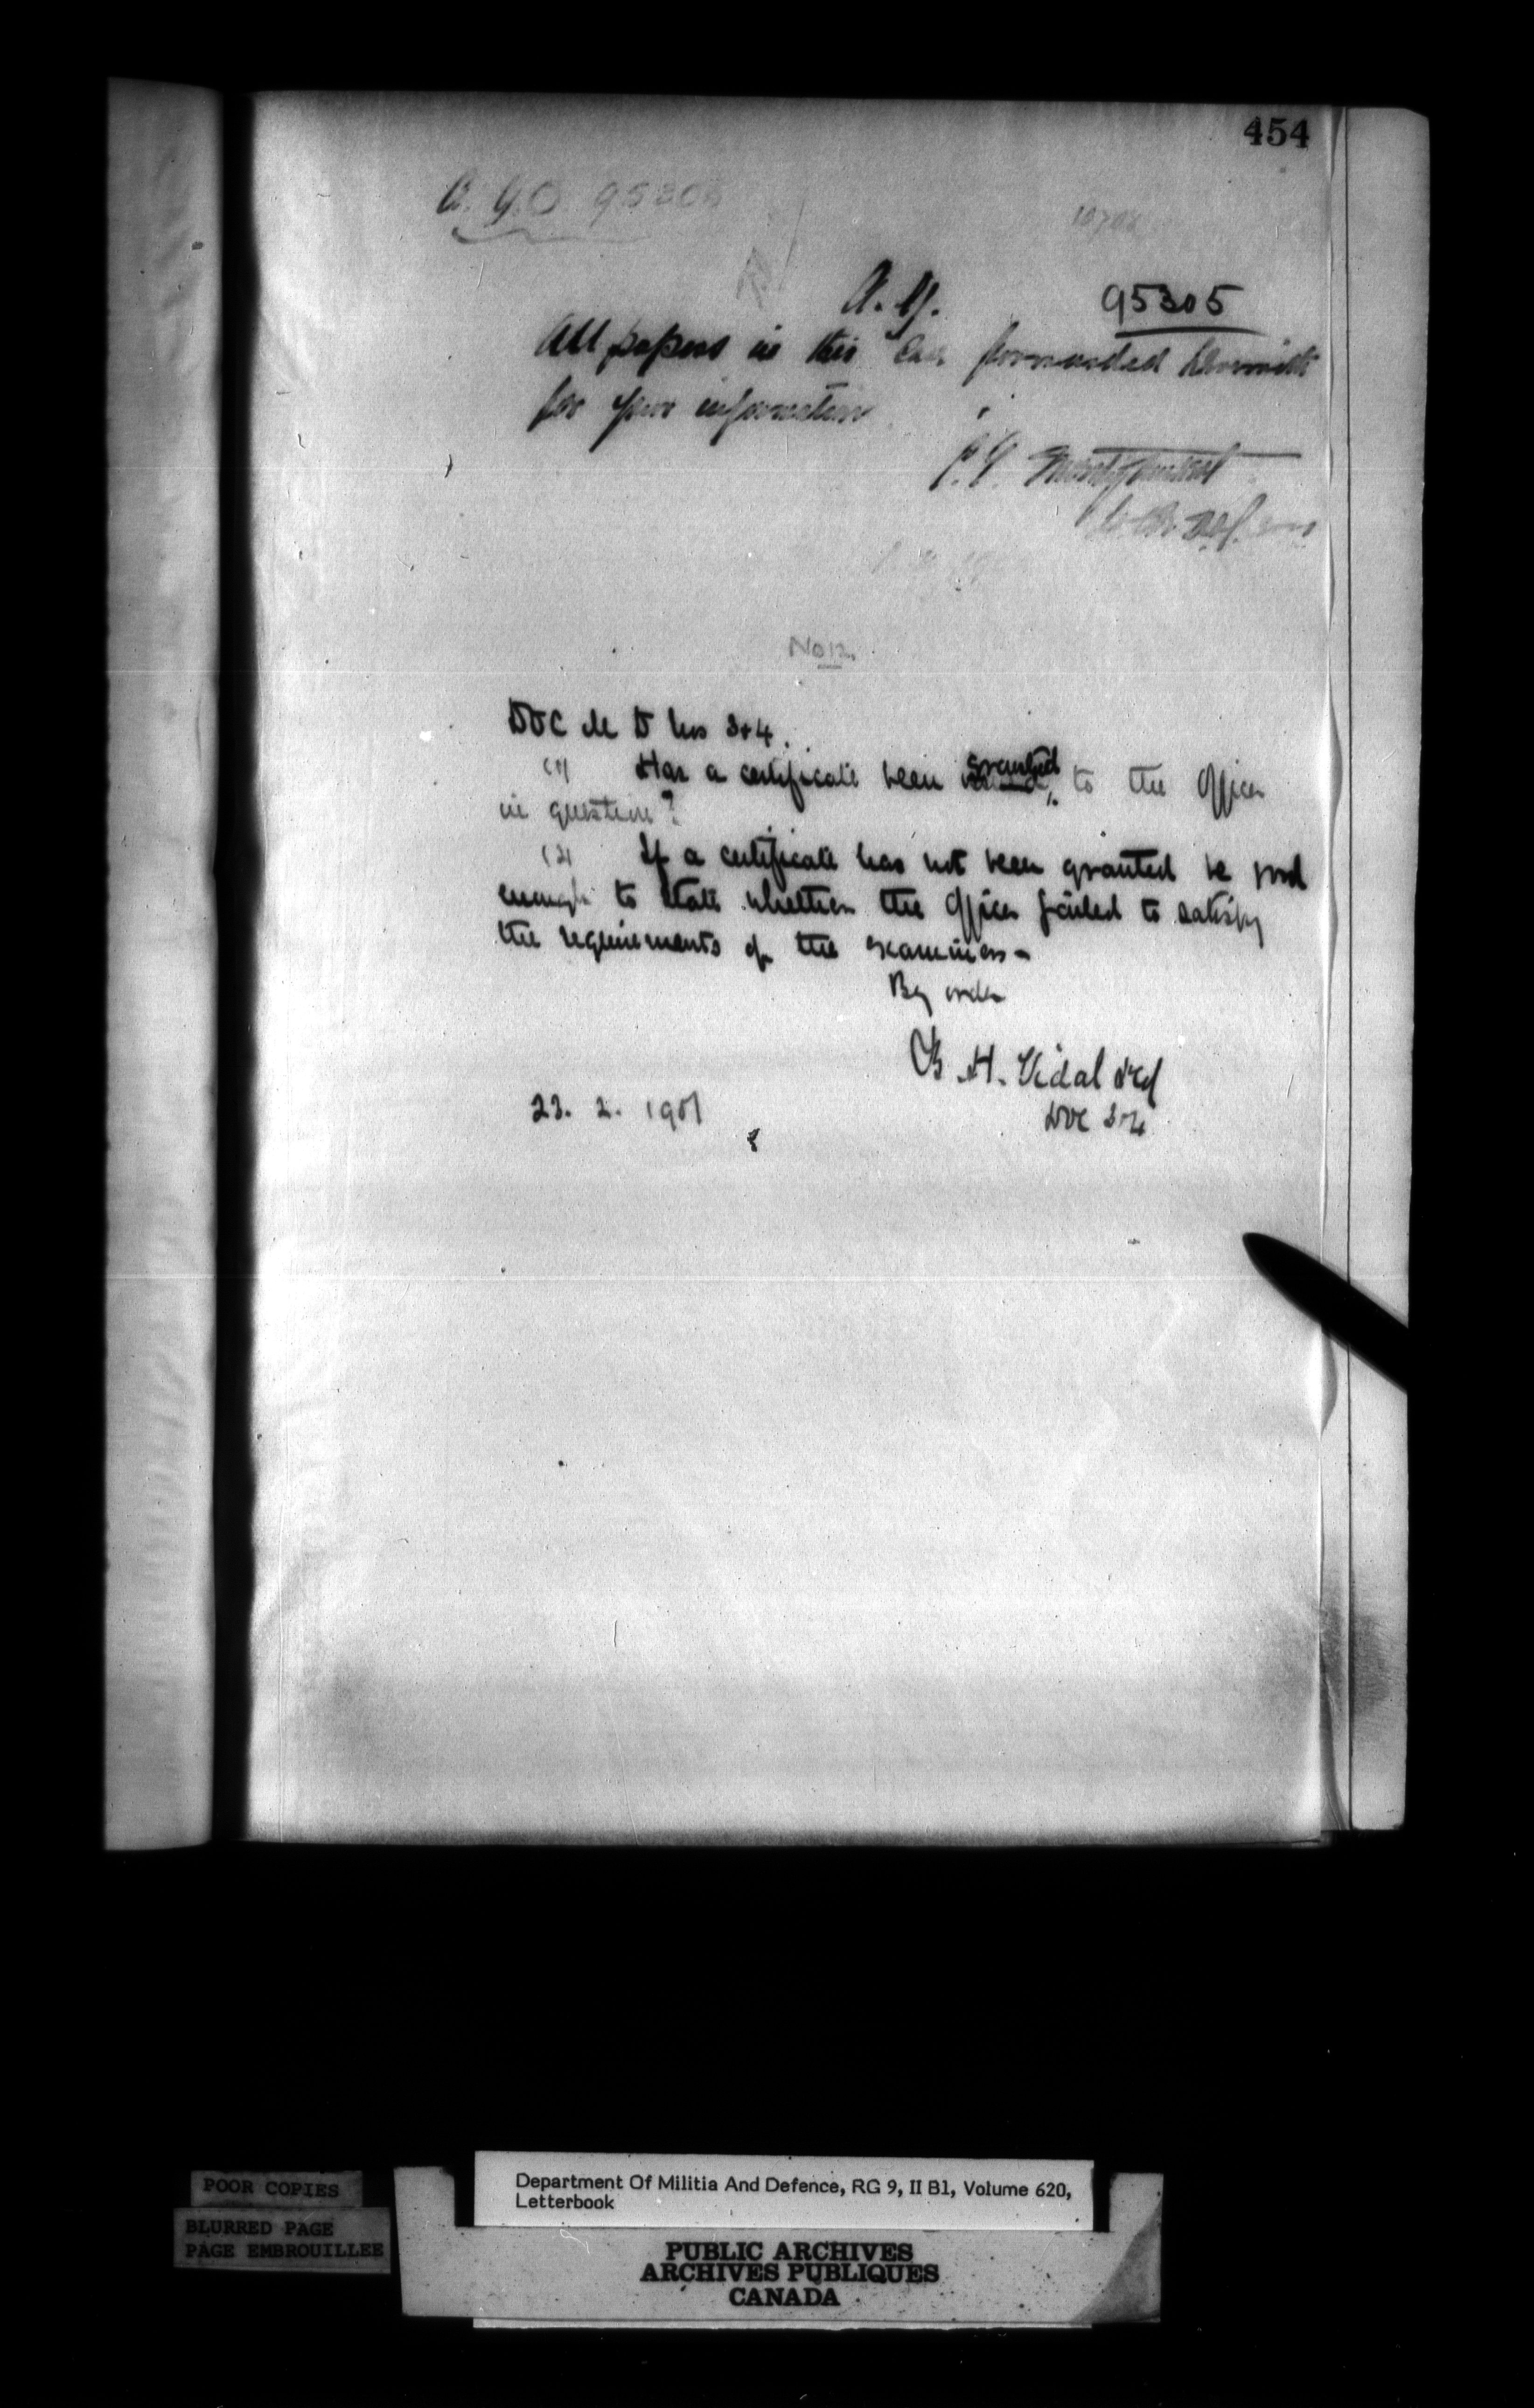 454
A. G. O. 95305
A. G. 95305
All papers in this case forwarded herewith
for your information
No 12.
DOC M D Nos 3+4.
(1) Has a certificate been granted to the Officer
in question?
(2) If a certificate has not been granted be good
enough to state whether the Officer failed to satisfy
the requirements of the examiners-
By order
B. H. Vidal
DOC 3+4
23. 2. 1901
POOR COPIES
BLURRED PAGE
PAGE EMBROUILLEE
Department Of Militia And Defence, RG 9, II B1, Volume 620,
Letterbook
PUBLIC ARCHIVES
ARCHIVES PUBLIQUES
CANADA